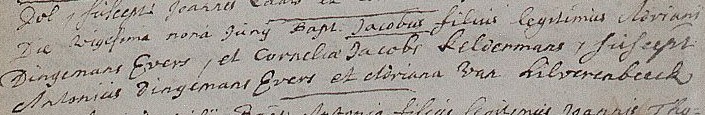 Dol, suscept Joannes
Die vigesima nona Junÿ Bapt. Jacobus filius legitimus Adriani
Dingemans Evers, et Cornelia Jacobi Keldermans, suscept
Antonius Dingemans Evers et Adriana Van Hilverenbeeck
Bapt. Antonia filia legitima Joannis Tho-